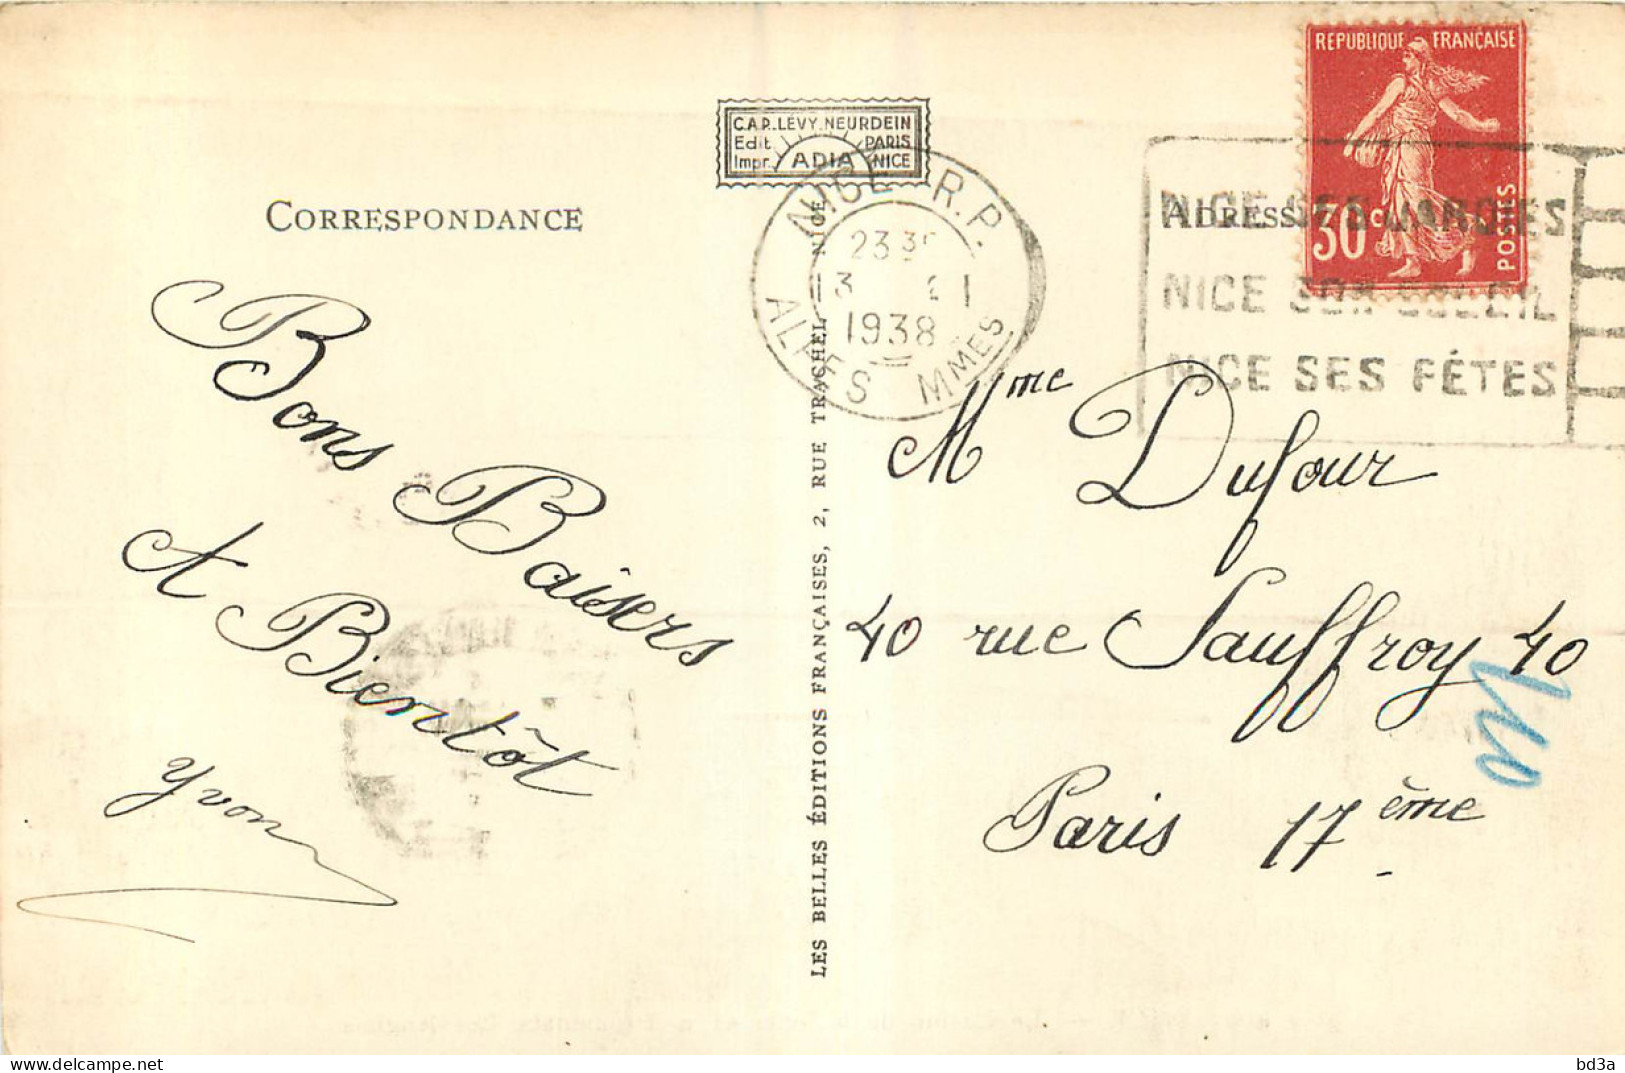 CORRESPONDANCE
Bons Baisers
A Bientôt
Yvon
C.A.P. LÉVY. NEURDEIN
Edit. PARIS
Impr. ADIA NICE
LES BELLES ÉDITIONS FRANÇAISES, 2, RUE TRACHEL — NICE
NICE R.P.
23
3 1
1938
ALPES MMES
RÉPUBLIQUE FRANÇAISE
30c
POSTES
ADRESSE
NICE SES JARDINS
NICE SON SOLEIL
NICE SES FÊTES
Mme Dufour
40 rue Sauffroy 40
Paris 17ème
bd3a